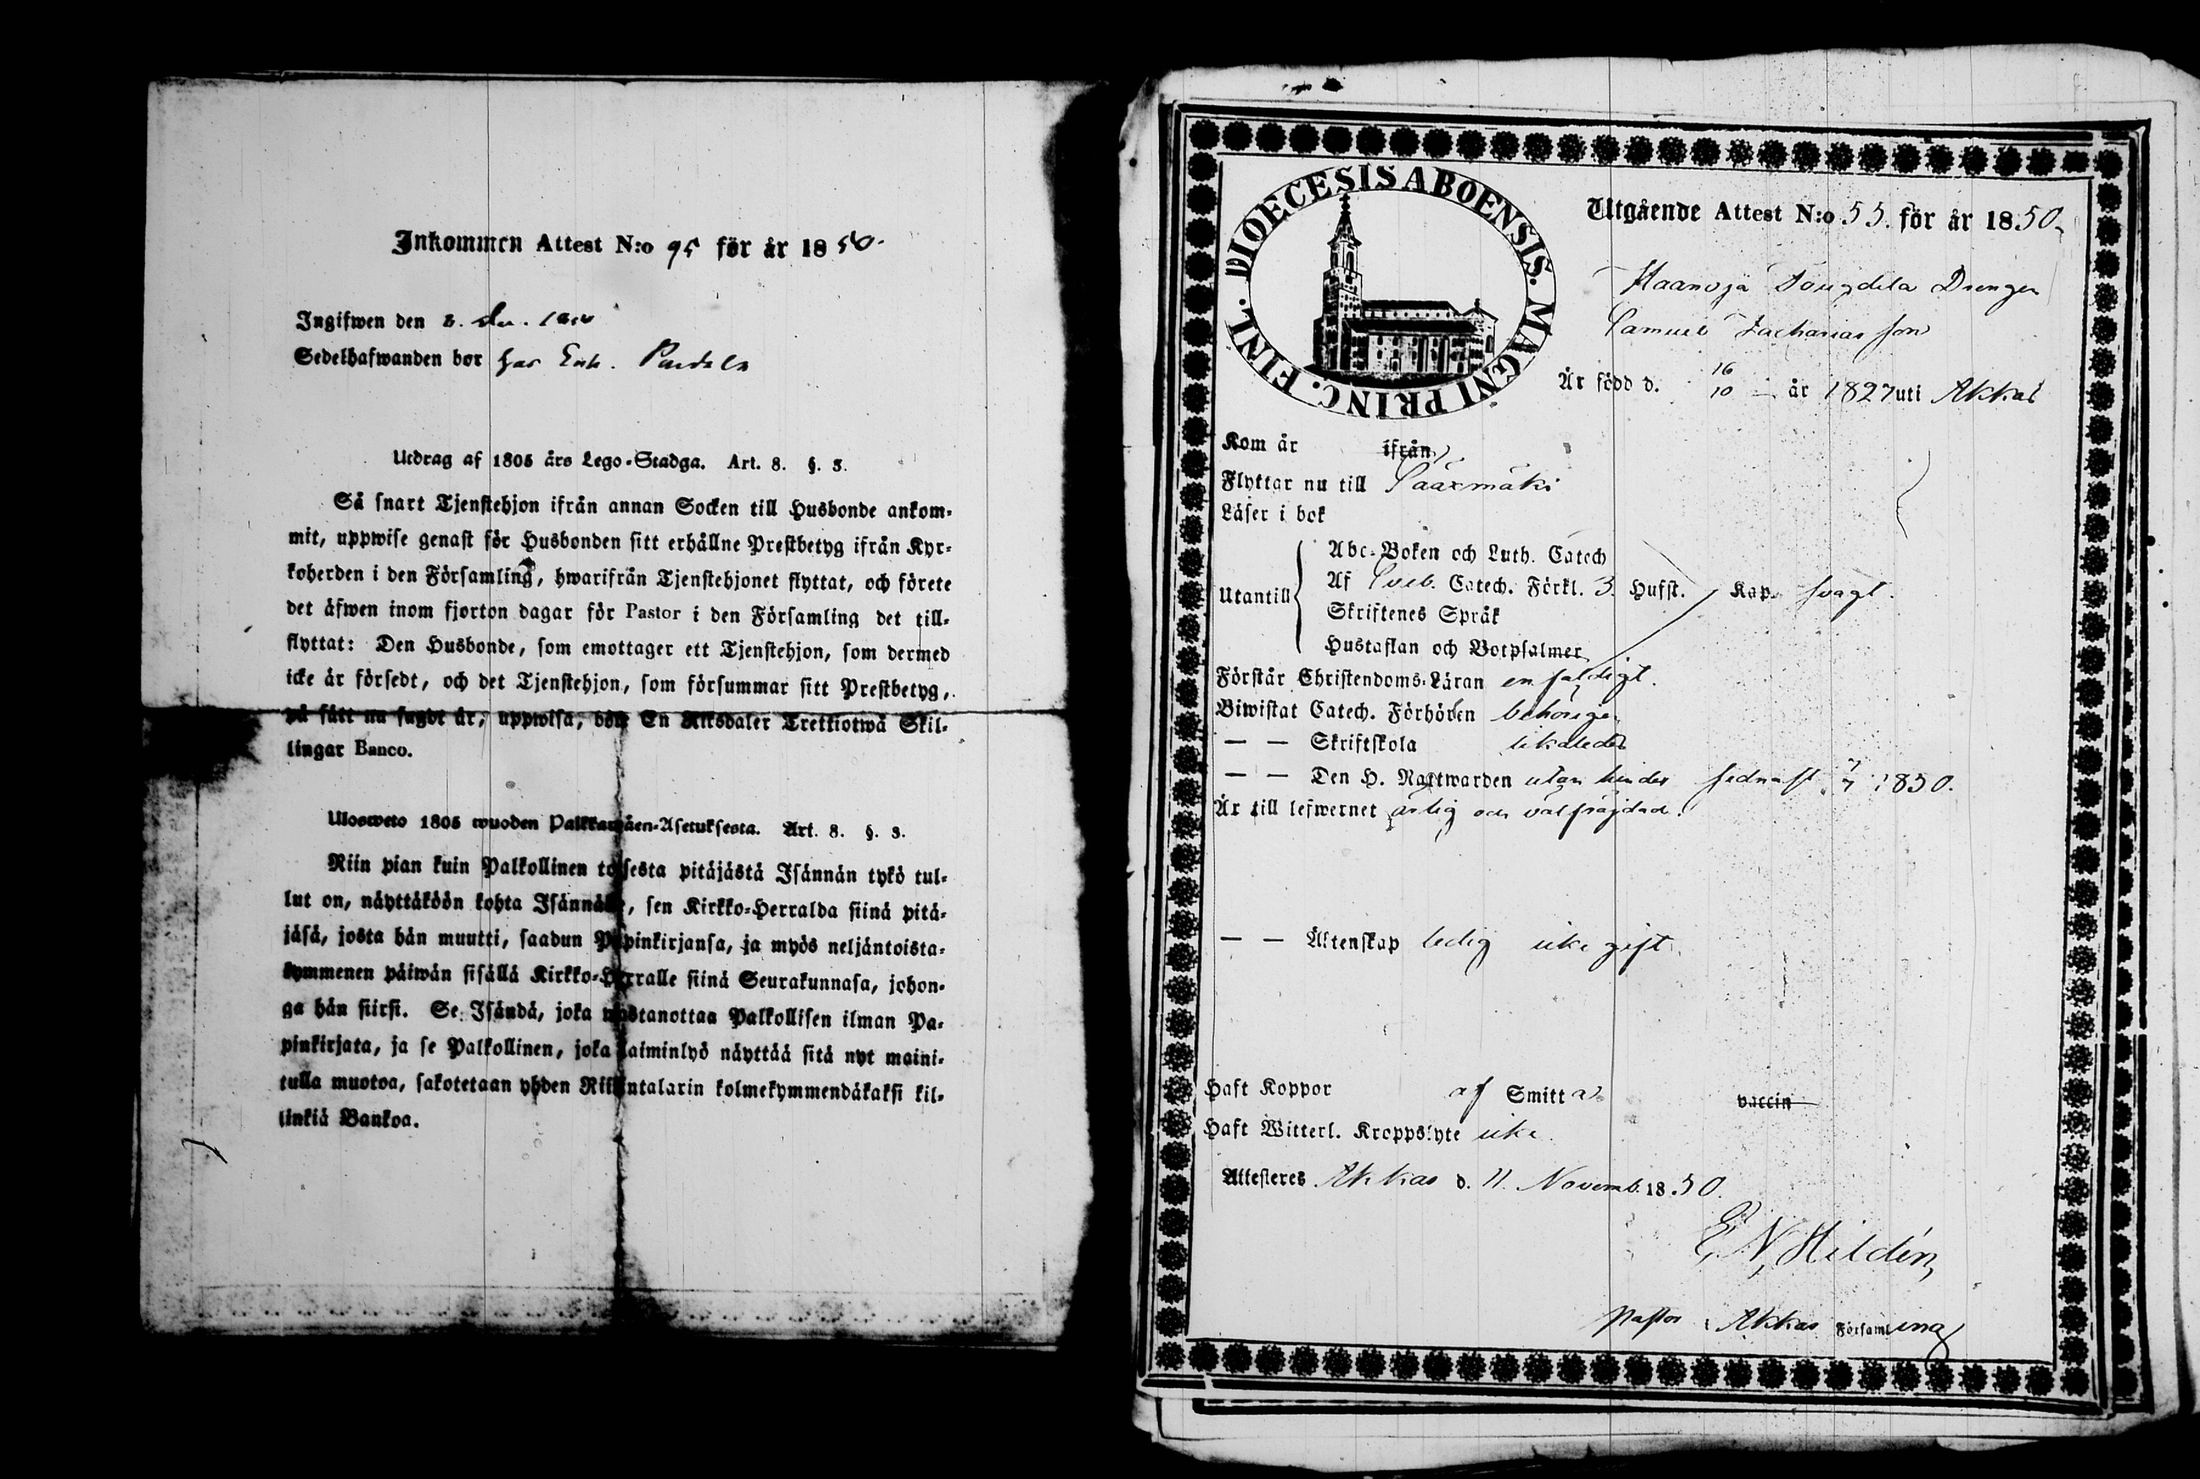 Inkommen Attest N:o 95 för år 1850.
Ingifwen den 8. 
Sedelhafwanden bor hos
Utdrag af 1805 års Lego-Stadga. Art. 8. §. 3.
Så snart Tjenstehjon ifrån annan Socken till Husbonde ankom-
mit, uppwise genast för Husbonden sitt erhållne Prestbetyg ifrån Kyr-
koherden i den Församling, hwarifrån Tjenstehjonet flyttat, och förete
det äfwen inom fjorton dagar för Pastor i den Församling det till-
flyttat: Den Husbonde, som emottager ett Tjenstehjon, som dermed
icke är försedt, och det Tjenstehjon, som försummar sitt Prestbetyg,
på sätt nu sagdt är, uppwisa, böte En Riksdaler Trettiotwå Skil-
lingar Banco.
Ulosweto 1805 wuoden Palkkawäen-Asetuksesta. Art. 8. §. 3.
Niin pian kuin Palkollinen toisesta pitäjästä Isännän tykö tul-
lut on, näyttäköön kohta Isännälle, sen Kirkko-Herralda siinä pitä-
jäsä, josta hän muutti, saadun Papinkirjansa, ja myös neljäntoista-
kymmenen päiwän sisällä Kirkko-Herralle siinä Seurakunnasa, johon-
ga hän siirsi. Se Isändä, joka wastanottaa Palkollisen ilman Pa-
pinkirjata, ja se Palkollinen, joka laiminlyö näyttää sitä nyt maini-
tulla muotoa, sakotetaan yhden Riikintalarin kolmekymmendäkaksi kil-
linkiä Bankoa.
DIOECESIS ABOENSIS. MAGNI PRINC. FINL.
Utgående Attest N:o 55. för år 1850.
Haanoja Drengen
Samuel Zachariasson
Är född d. 16/10 år 1827 uti Akkas
Kom år ifrån
Flyttar nu till Sääxmäki
Läser i bok
Utantill
Abc-Boken och Luth. Catech
Af Sveb. Catech. Förkl. 3. Hufst. Kap. svagt.
Skriftenes Språk
Hustaflan och Botpsalmer
Förstår Christendoms-Läran enfaldigt.
Biwistat Catech. Förhören behörigen
— — Skriftskola likaledes
— — Den H. Nattwarden utan hinder sednast 7/7 1850.
Är till lefwernet ärlig och välfräjdad.
— — Äktenskap ledig icke gift
Haft Koppor af Smitta vaccin
Haft Witterl. Kroppslyte icke
Attesteres Akkas d. 11. Novemb. 1850.
E. N. Hildén,
Pastor i Akkas Församling